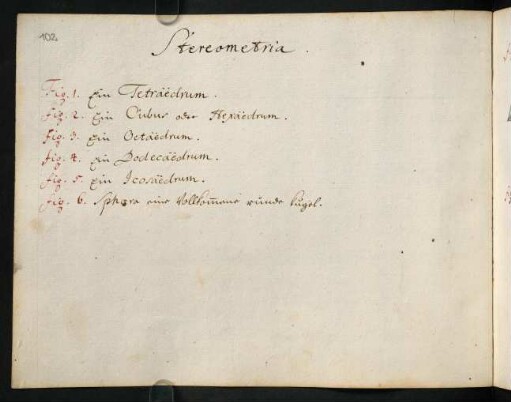 102
Stereometria.
Fig. 1. Ein Tetraëdrum.
fig. 2. Ein Cubus oder Hexaëdrum.
fig. 3. Ein Octaëdrum.
fig. 4. Ein Dodecaëdrum.
fig. 5. Ein Icosaëdrum.
fig. 6. Sphæra eine Vollkom̄ene runde Kugel.